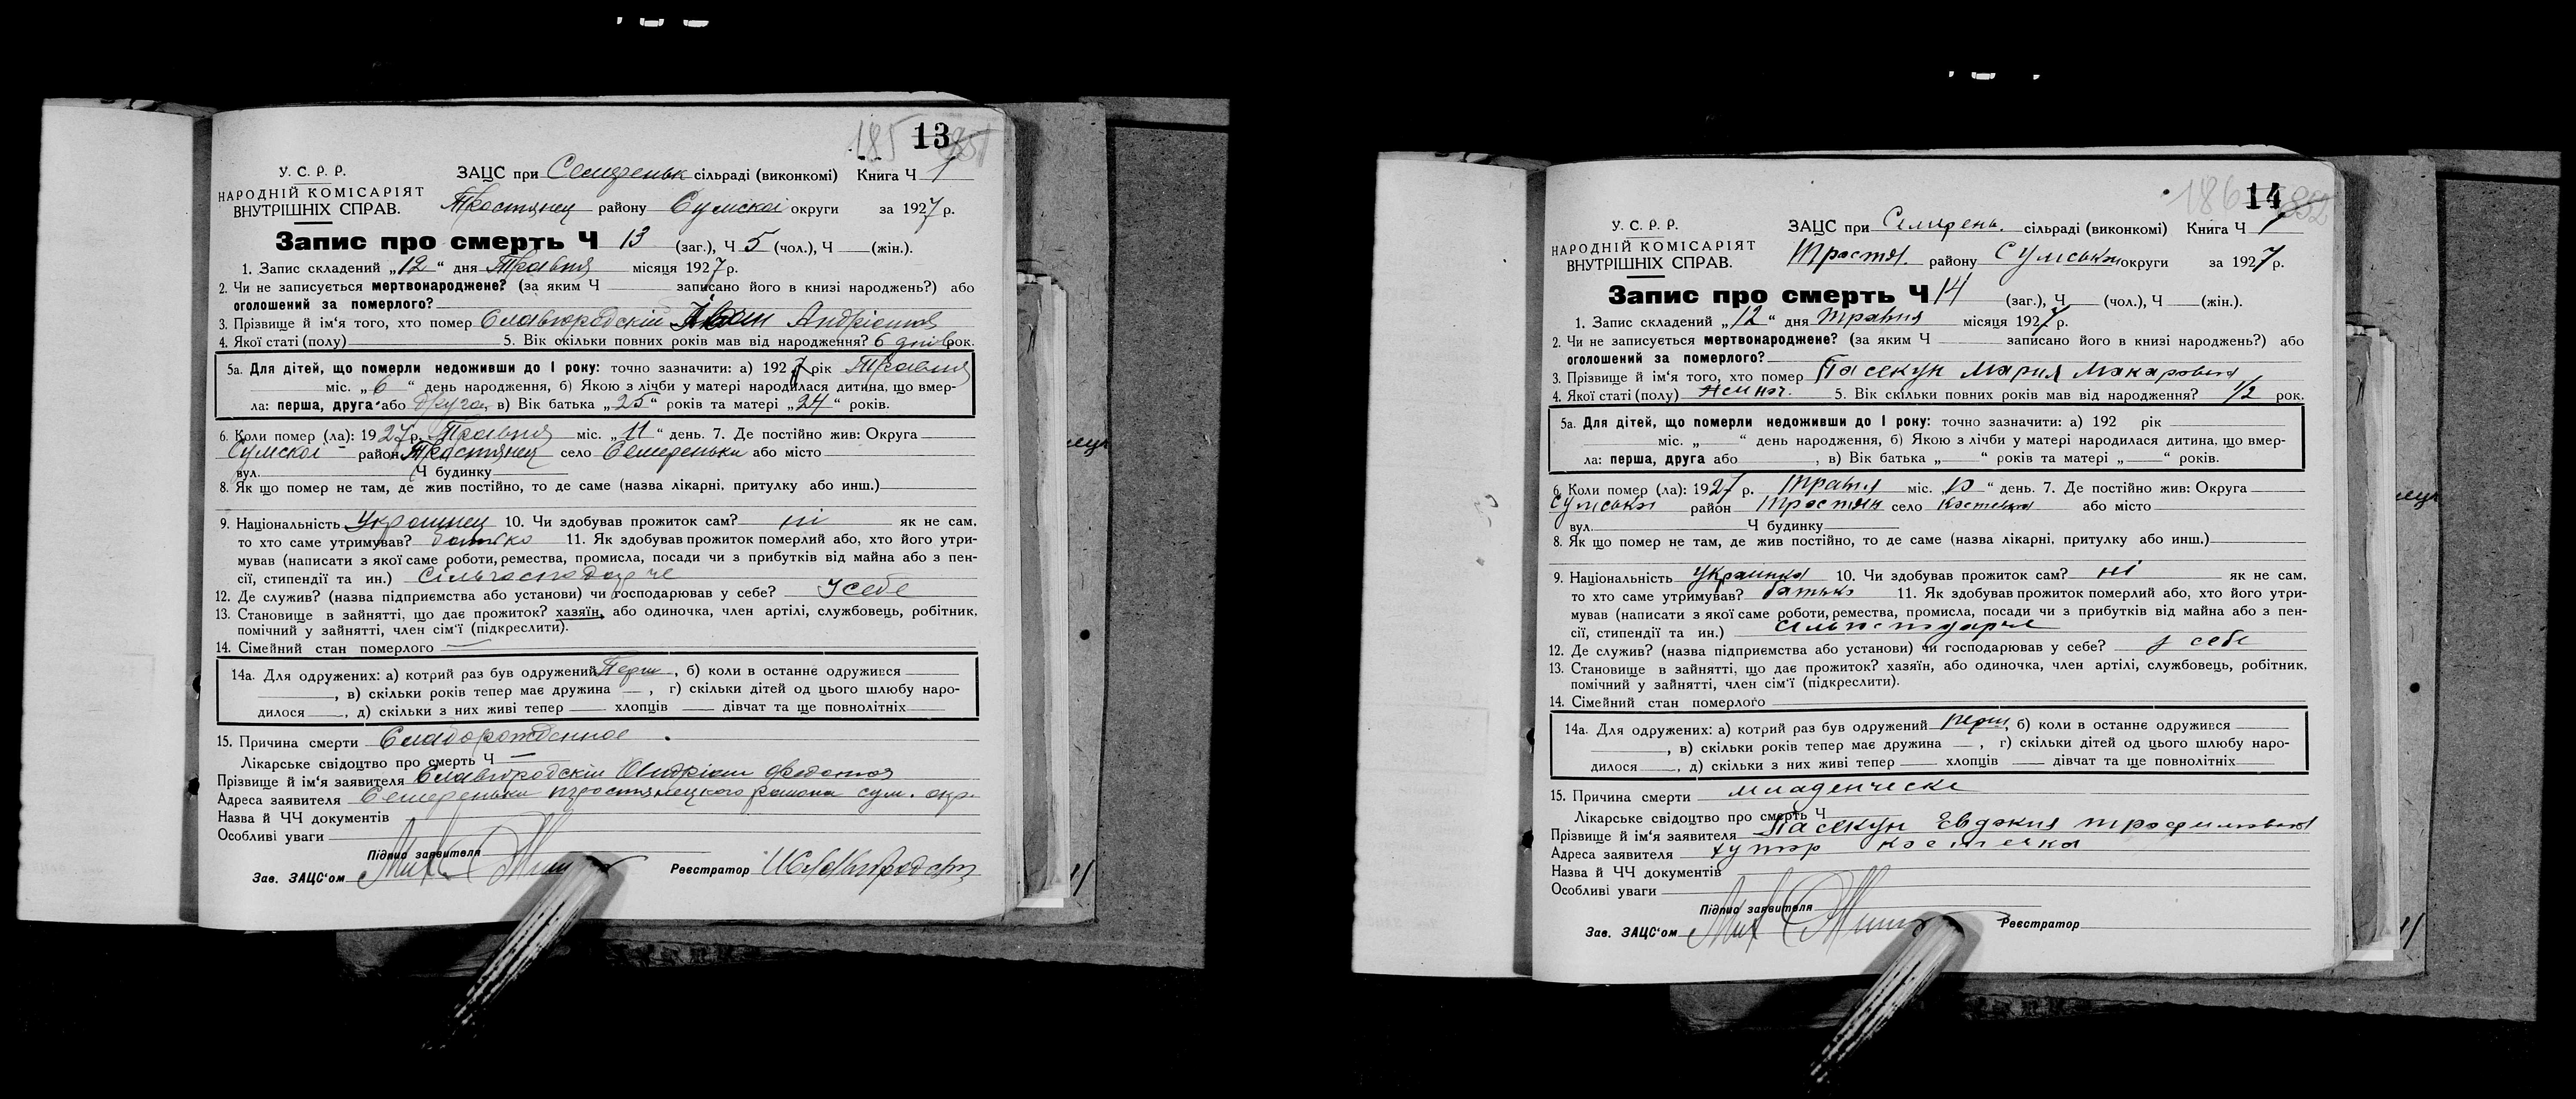 185 13
У. С. Р. Р.
НАРОДНІЙ КОМІСАРІЯТ
ВНУТРІШНІХ СПРАВ.
ЗАЦС при Семереньк сільраді (виконкомі) Книга Ч 1
Тростянец району Сумскоі округи за 1927 р.
Запис про смерть Ч 13 (заг.), Ч 5 (чол.), Ч (жін.).
1. Запис складений „12“ дня Травня місяця 1927 р.
2. Чи не записується мертвонароджене? (за яким Ч записано його в книзі народжень?) або
оголошений за померлого?
3. Прізвище й ім'я того, хто помер Славгородскій Іван Андріанов
4. Якої статі (полу) 5. Вік скільки повних років мав від народження? 6 днів рок.
5а. Для дітей, що померли недоживши до 1 року: точно зазначити: а) 1927 рік Травня
міс. „6“ день народження, б) Якою з лічби у матері народилася дитина, що вмер-
ла: перша, друга або друга, в) Вік батька „25“ років та матері „24“ років.
6. Коли помер (ла): 1927 р. Травня міс. „11“ день. 7. Де постійно жив: Округа
Сумскоі район Тростянец село Семереньки або місто
вул. Ч будинку
8. Як що помер не там, де жив постійно, то де саме (назва лікарні, притулку або инш.)
9. Національність Украинец 10. Чи здобував прожиток сам? ні як не сам,
то хто саме утримував? батько 11. Як здобував прожиток померлий або, хто його утри-
мував (написати з якої саме роботи, ремества, промисла, посади чи з прибутків від майна або з пен-
сії, стипендії та ин.) Сільгосподарче
12. Де служив? (назва підприємства або установи) чи господарював у себе? У себе
13. Становище в зайнятті, що дає прожиток? хазяїн, або одиночка, член артілі, службовець, робітник,
помічний у зайнятті, член сім'ї (підкреслити).
14. Сімейний стан померлого
14а. Для одружених: а) котрий раз був одружений Перш, б) коли в останнє одружився
, в) скільки років тепер має дружина , г) скільки дітей од цього шлюбу наро-
дилося , д) скільки з них живі тепер хлопців дівчат та ще повнолітніх
15. Причина смерти Слаборожденное
Лікарське свідоцтво про смерть Ч
Прізвище й ім'я заявителя Славгородскій Андріан Федотов
Адреса заявителя Семереньки тростянецкого района сум. окр.
Назва й ЧЧ документів
Особливі уваги
Підпис заявителя
Зав. ЗАЦС'ом Реєстратор
186 14
У. С. Р. Р.
НАРОДНІЙ КОМІСАРІЯТ
ВНУТРІШНІХ СПРАВ.
ЗАЦС при Семерень. сільраді (виконкомі) Книга Ч 1
Тростя. району Сумськои округи за 1927 р.
Запис про смерть Ч 14 (заг.), Ч (чол.), Ч (жін.).
1. Запис складений „12“ дня травня місяця 1927 р.
2. Чи не записується мертвонароджене? (за яким Ч записано його в книзі народжень?) або
оголошений за померлого?
3. Прізвище й ім'я того, хто помер Пасекун Мария Макаровна
4. Якої статі (полу) жиноч. 5. Вік скільки повних років мав від народження? 1/2 рок.
5а. Для дітей, що померли недоживши до 1 року: точно зазначити: а) 192 рік
міс. „ “ день народження, б) Якою з лічби у матері народилася дитина, що вмер-
ла: перша, друга або , в) Вік батька „ “ років та матері „ “ років.
6. Коли помер (ла): 1927 р. травня міс. день. 7. Де постійно жив: Округа
Сумськоі район Тростян село або місто
вул. Ч будинку
8. Як що помер не там, де жив постійно, то де саме (назва лікарні, притулку або инш.)
9. Національність Украинка 10. Чи здобував прожиток сам? ні як не сам,
то хто саме утримував? батько 11. Як здобував прожиток померлий або, хто його утри-
мував (написати з якої саме роботи, ремества, промисла, посади чи з прибутків від майна або з пен-
сії, стипендії та ин.)
12. Де служив? (назва підприємства або установи) чи господарював у себе? у себе
13. Становище в зайнятті, що дає прожиток? хазяїн, або одиночка, член артілі, службовець, робітник,
помічний у зайнятті, член сім'ї (підкреслити).
14. Сімейний стан померлого
14а. Для одружених: а) котрий раз був одружений перш, б) коли в останнє одружився
, в) скільки років тепер має дружина , г) скільки дітей од цього шлюбу наро-
дилося , д) скільки з них живі тепер хлопців дівчат та ще повнолітніх
15. Причина смерти младенческе
Лікарське свідоцтво про смерть Ч
Прізвище й ім'я заявителя Пасекун Евдокия трофимовна
Адреса заявителя хутор
Назва й ЧЧ документів
Особливі уваги
Підпис заявителя
Зав. ЗАЦС'ом Реєстратор